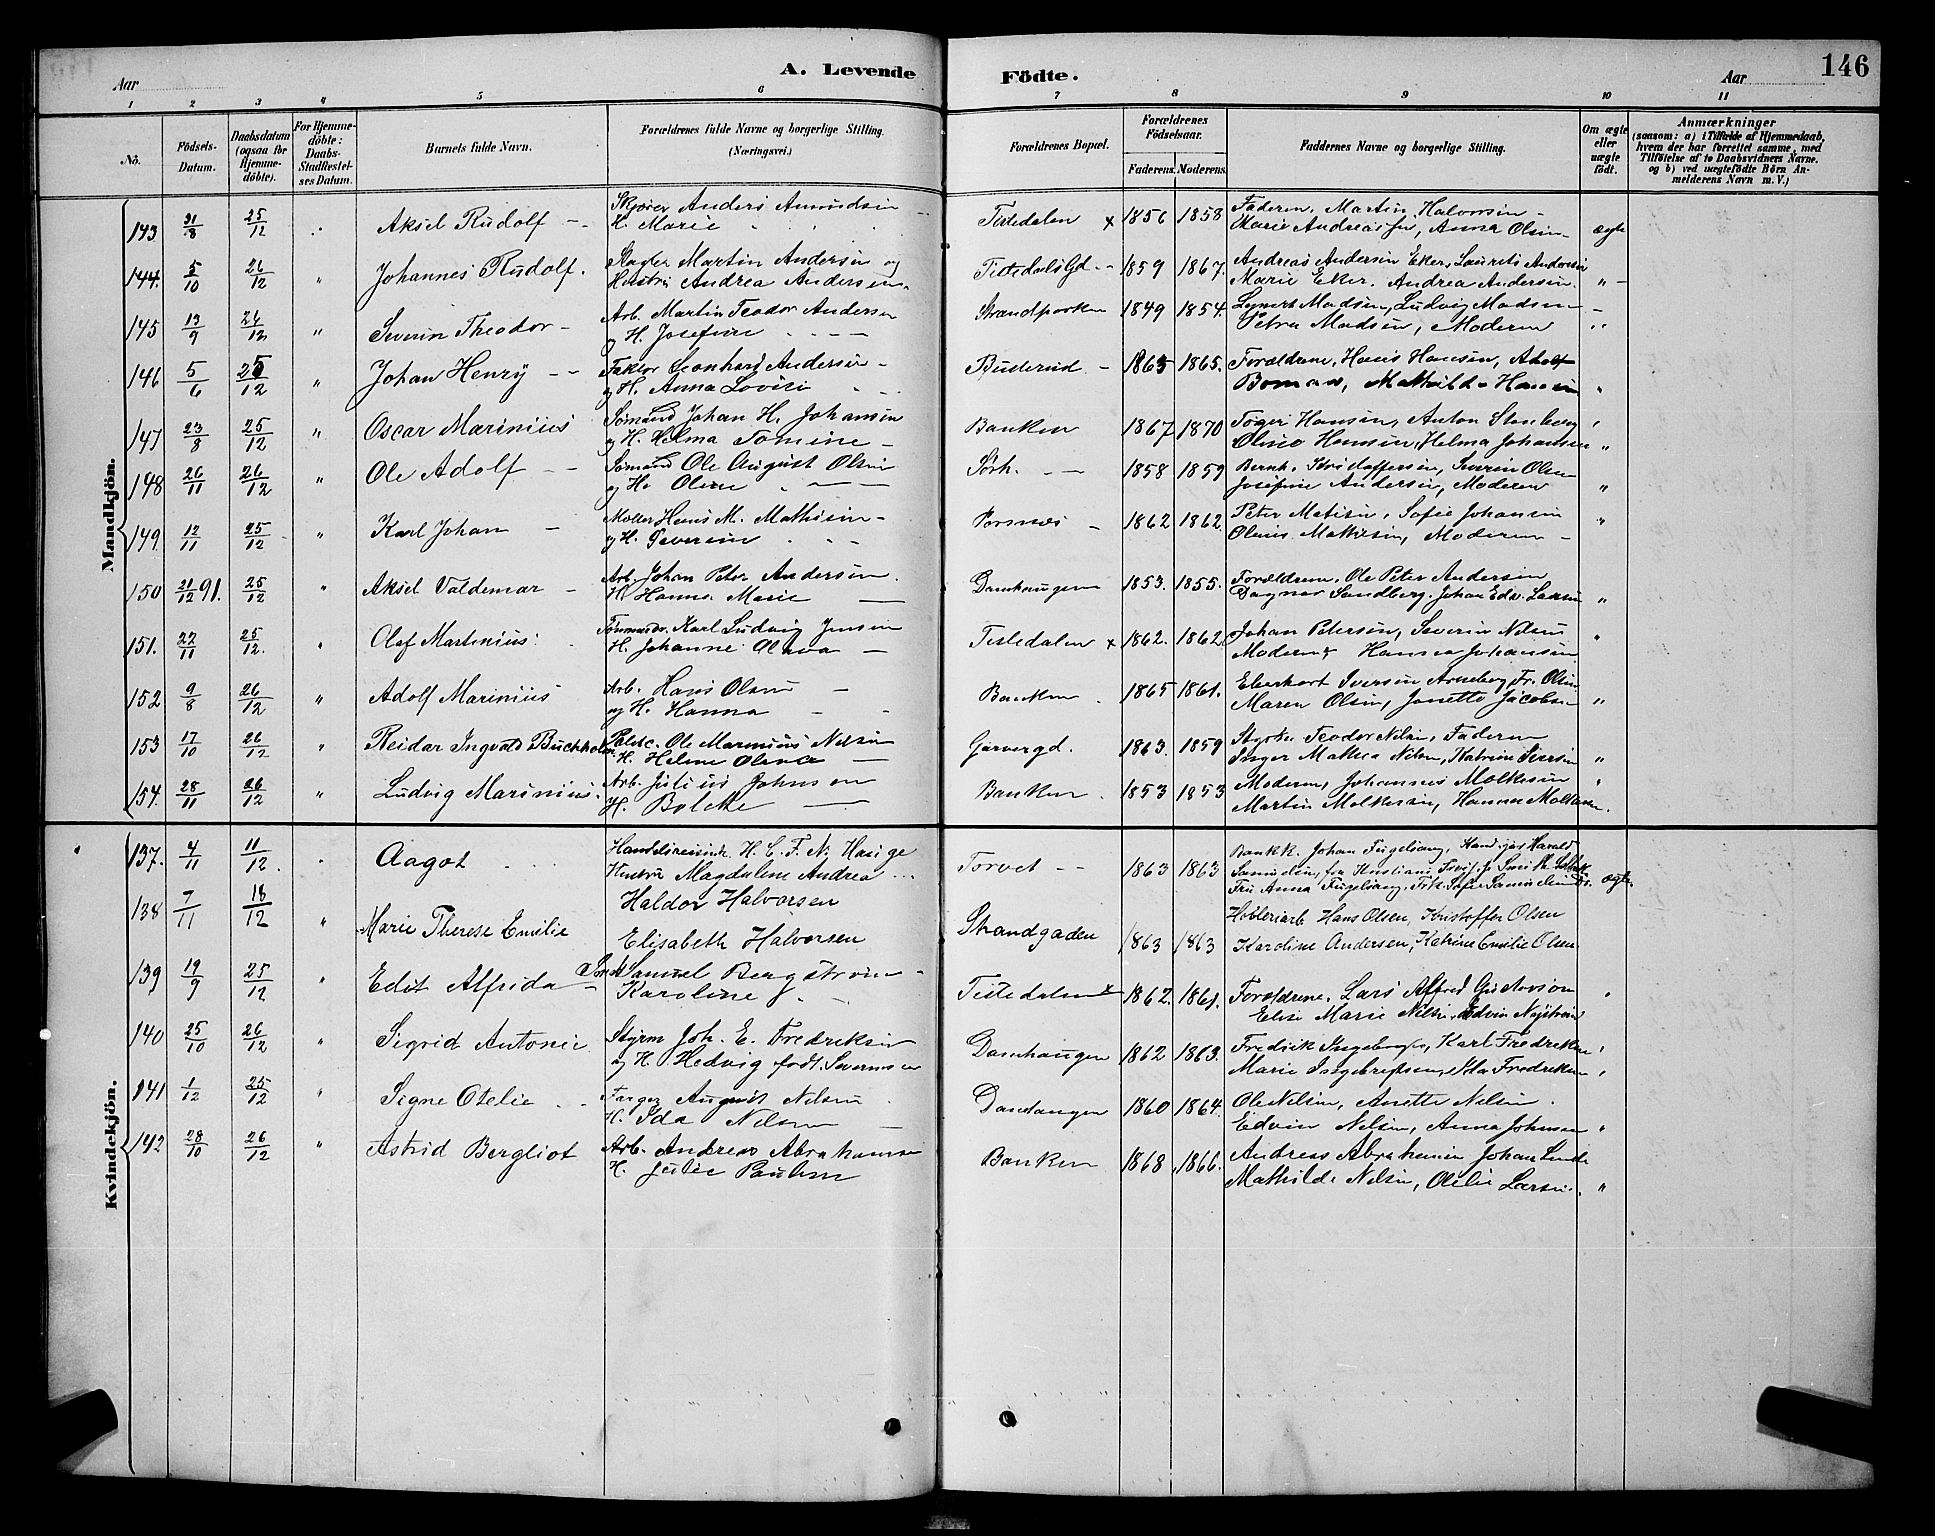 A. Levende
Födte.
146
Aar
Aar
1 2 3 4 5 6 7 8 9 10 11
No.
Födsels-Datum.
Daabsdatum (ogsaa for Hjemme-döbte).
For Hjemme-döbte: Daabs-Stadfæstel-ses Datum.
Barnets fulde Navn.
Forældrenes fulde Navne og borgerlige Stilling. (Næringsvei.)
Forældrenes Bopæl.
Forældrenes Födselsaar.
Faderens. Moderens.
Faddernes Navne og borgerlige Stilling.
Om ægte eller uægte födt.
Anmærkninger
(saasom: a) i Tilfælde af Hjemmedaab, hvem der har forrettet samme, med Tilföielse af to Daabsvidners Navne. og b) ved uægtefödte Börn An-melderens Navn m. V.)
Mandkjön.
143 21/8 25/12 Aksel Rudolf Anders Amundsen Tistedalen x 1856 1858 Faderen, Martin Halvorsen
H. Marie Anna Olsen ægte
144. 5/10 26/12 " Johannes Rudolf. Slagter Martin Andersen og Tistedalsgd. 1859 1867. Andreas Andersen Eker, Laurits Andersen
Hustru Andrea Andersen Marie Eker. Andrea Andersen. "
145 13/9 26/12 " Severin Theodor Arb. Martin Teodor Andersen 1849 1854. Madsen, Ludvig Madsen
og H. Josefine Petra Madsen, Moderen "
146 5/6 25/12 " Johan Henry Faktor Leonhard Andersen Buderud 1865 1865. Forældrene, Hans Hansen, Adolf
og H. Anna Lovise Boman, Mathilde Hansen "
147 23/8 25/12 " Oscar Marinius Sømand Johan H. Johansen Banken 1867 1870 Hansen, Anton Stenberg
og H. Helma Tomine Hansen, Helma Johansen "
148 26/11 26/12 " Ole Adolf Sømand Ole August Olsen Sørh. 1858 1859 Bernh. Kristoffersen, Severin Olsen
og H. Olene Josefine Andersen, Moderen "
149 12/11 25/12 " Karl Johan Møller Hans M. Mathisen Porsnæs 1862 1862. Peter Matisen, Sofie Johansen "
og H. Severine Mathisen, Moderen
150 21/12 91. 25/12 " Aksel Valdemar Arb. Johan Peter Andersen. Damhaugen 1853. 1855. Forældrene, Ole Peter Andersen
H. Hanna Marie Dagmar Sandberg, Johan Edv. Larsen "
151. 22/11 25/12. " Olaf Martinius Karl Ludvig Jensen Tistedalen x 1862. 1862 Johan Petersen, Severin Nilsen "
H. Johanne Olava Moderen & Hansea Johansen
152 9/8 26/12 " Adolf Marinius Arb. Hans Olsen Banken 1865 1861. Eberhart Iversen Arneberg, Fr. Olsen
og H. Hanna Maren Olsen, Jonette Jacobsen "
153 17/10 26/12 " Reidar Ingvald Buchholm Politic. Ole Marinius Nilsen Garvergd. 1863. 1859 Teodor Nilsen, Faderen
H. Helene Oliva Inger Mathea Nilsen, Katrine Iversen "
154. 28/11 26/12 " Ludvig Marinius. Arb. Julius Johnsen Banken 1853 1853 Moderen, Johannes Molkesen "
H. Bolette Martin Molkesen, Hanna Molkesen.
Kvindekjön.
137. 4/11 11/12. Aagot Handelsreisende H. C. F. N. Hauge Torvet 1863 1863 Bankk. Johan Fugelsang, Harald
Hustru Magdalene Andrea Fru Anna Fugelsang, Frk. Sofie Samuelsen ægte.
138 7/11 18/12 " Marie Therese Emilie Haldor Halvorsen Strandgaden 1863 1863 Høvleriarb. Hans Olsen, Kristoffer Olsen
Elisabeth Halvorsen Karoline Andersen, Katrine Emilie Olsen
139 19/9 25/12 " Edit Alfrida Samuel Bergstrøm Tistedalen x 1862. 1861. Forældrene, Lars Alfred Gustavson "
Karoline Elise Marie Nilsen, Edvin Nystrøm
140 25/10 26/12 " Sigrid Antonie Styrm Joh. E. Fredriksen Damhaugen 1862 1863. Fredrik Ingebregtsen, Karl Fredriksen "
og H. Hedvig født Severinsen Marie Ingebregtsen, Ida Fredriksen "
141 1/12 25/12 " Signe Otelie Farger August Nilsen Damhaugen 1860 1864. Ole Nilsen, Anette Nilsen.
H. Ida Nilsen Edvin Nilsen, Anna Johnsen "
142 28/10 26/12 " Astrid Bergliot Arb. Andreas Abrahamsen Banken 1868 1866. Andreas Abrahamsen Johan Linde
H. Julie Pauline Mathilde Nilsen, Otilie Larsen. "